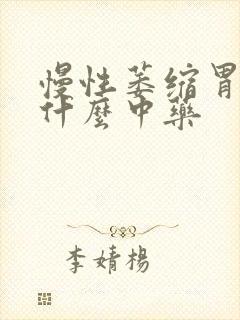 慢性萎缩胃
什麼中藥
李婧楊